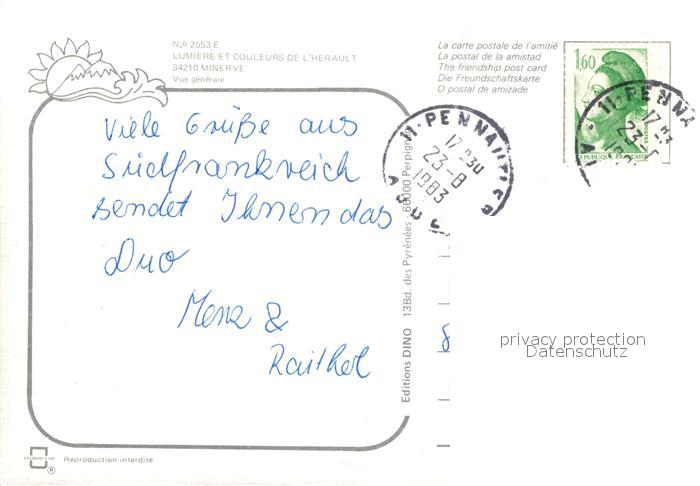 N.º 2553 E
LUMIERE ET COULEURS DE L'HERAULT
34210 MINERVE
Vue générale
La carte postale de l'amitié
La postal de la amistad
The friendship post card
Die Freundschaftskarte
O postal de amizade
1,60
REPUBLIQUE FRANÇAISE
11-PENNA
17 H30
23-8
1983
AUDE
11-PENNA
17 H3
23-
19
Viele Grüße aus
Südfrankreich
sendet Ihnen das
Duo
Menz &
Raithel
Editions DINO 13Bd. des Pyrénées - 66000 Perpign
privacy protection
Datenschutz
Reproduction interdite
®